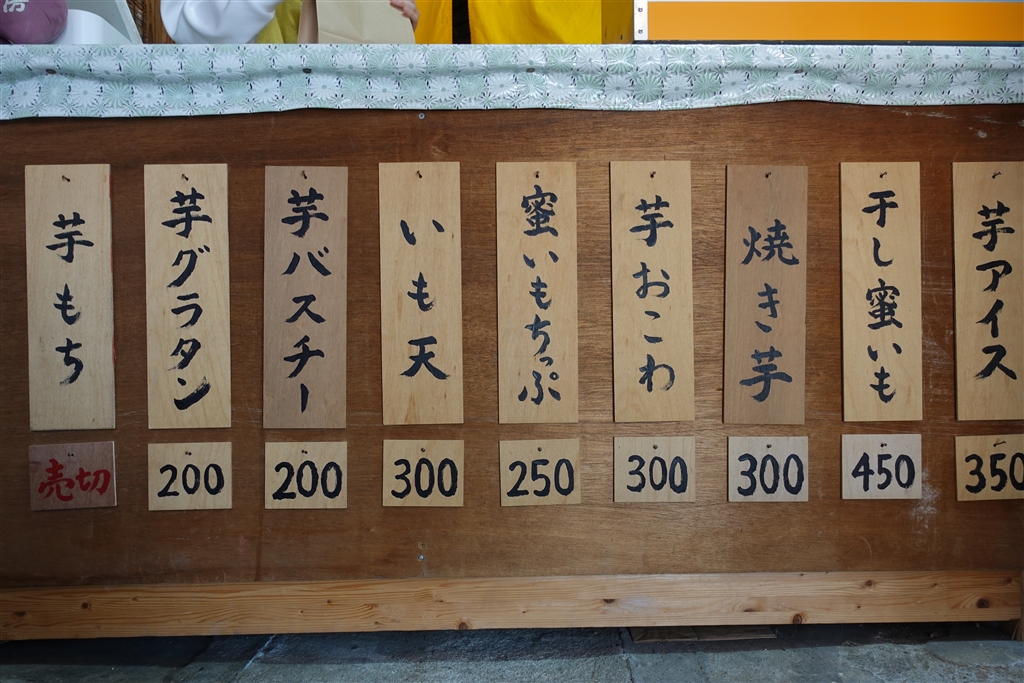 芋もち
売切
芋グラタン
200
芋バスチー
200
いも天
300
蜜いもちっぷ
250
芋おこわ
300
焼き芋
300
干し蜜いも
450
芋アイス
350